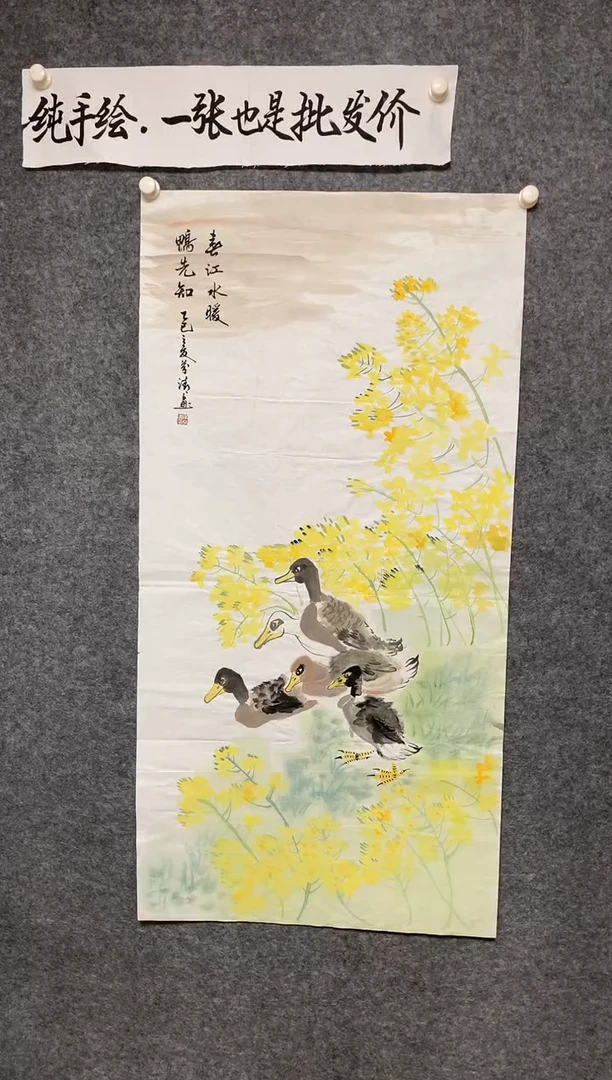 纯手绘.一张也是批发价
春江水暖
鸭先知
乙巳之夏